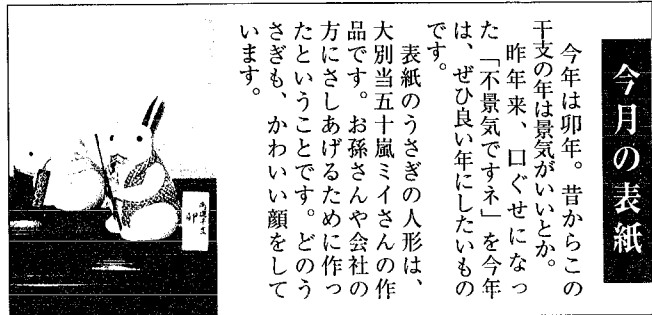 今月の表紙
今年は卯年。昔からこの
干支の年は景気がいいとか。
昨年来、口ぐせになっ
た「不景気ですネ」を今年
は、ぜひ良い年にしたいもの
です。
表紙のうさぎの人形は、
大別当五十嵐ミイさんの作
品です。お孫さんや会社の
方にさしあげるために作っ
たということです。どのう
さぎも、かわいい顔をして
います。
卯